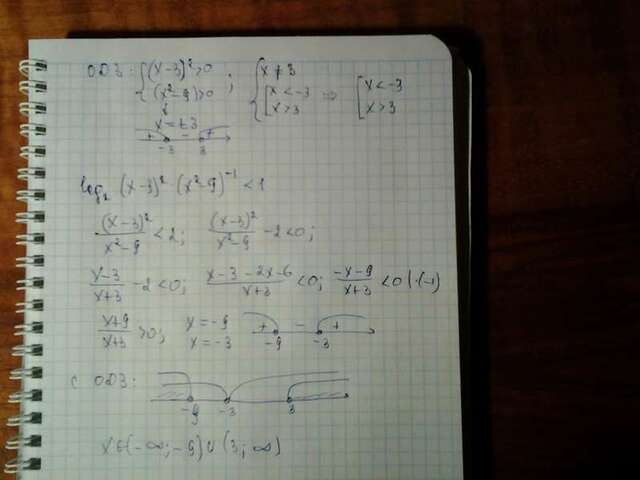 ОДЗ: { (x-3)² > 0 ; { x ≠ 3
(x²-9) > 0 [ x < -3 ⇒ [ x < -3
x = ±3 x > 3 x > 3
+ - +
-3 3
log₂ (x-3)² · (x²-9)⁻¹ < 1
(x-3)²/(x²-9) < 2; (x-3)²/(x²-9) - 2 < 0;
(x-3)/(x+3) - 2 < 0; (x-3-2x-6)/(x+3) < 0; (-x-9)/(x+3) < 0 | ·(-1)
(x+9)/(x+3) > 0; x = -9 + - +
x = -3 -9 -3
с ОДЗ:
-9 -3 3
x ∈ (-∞; -9) ∪ (3; ∞)